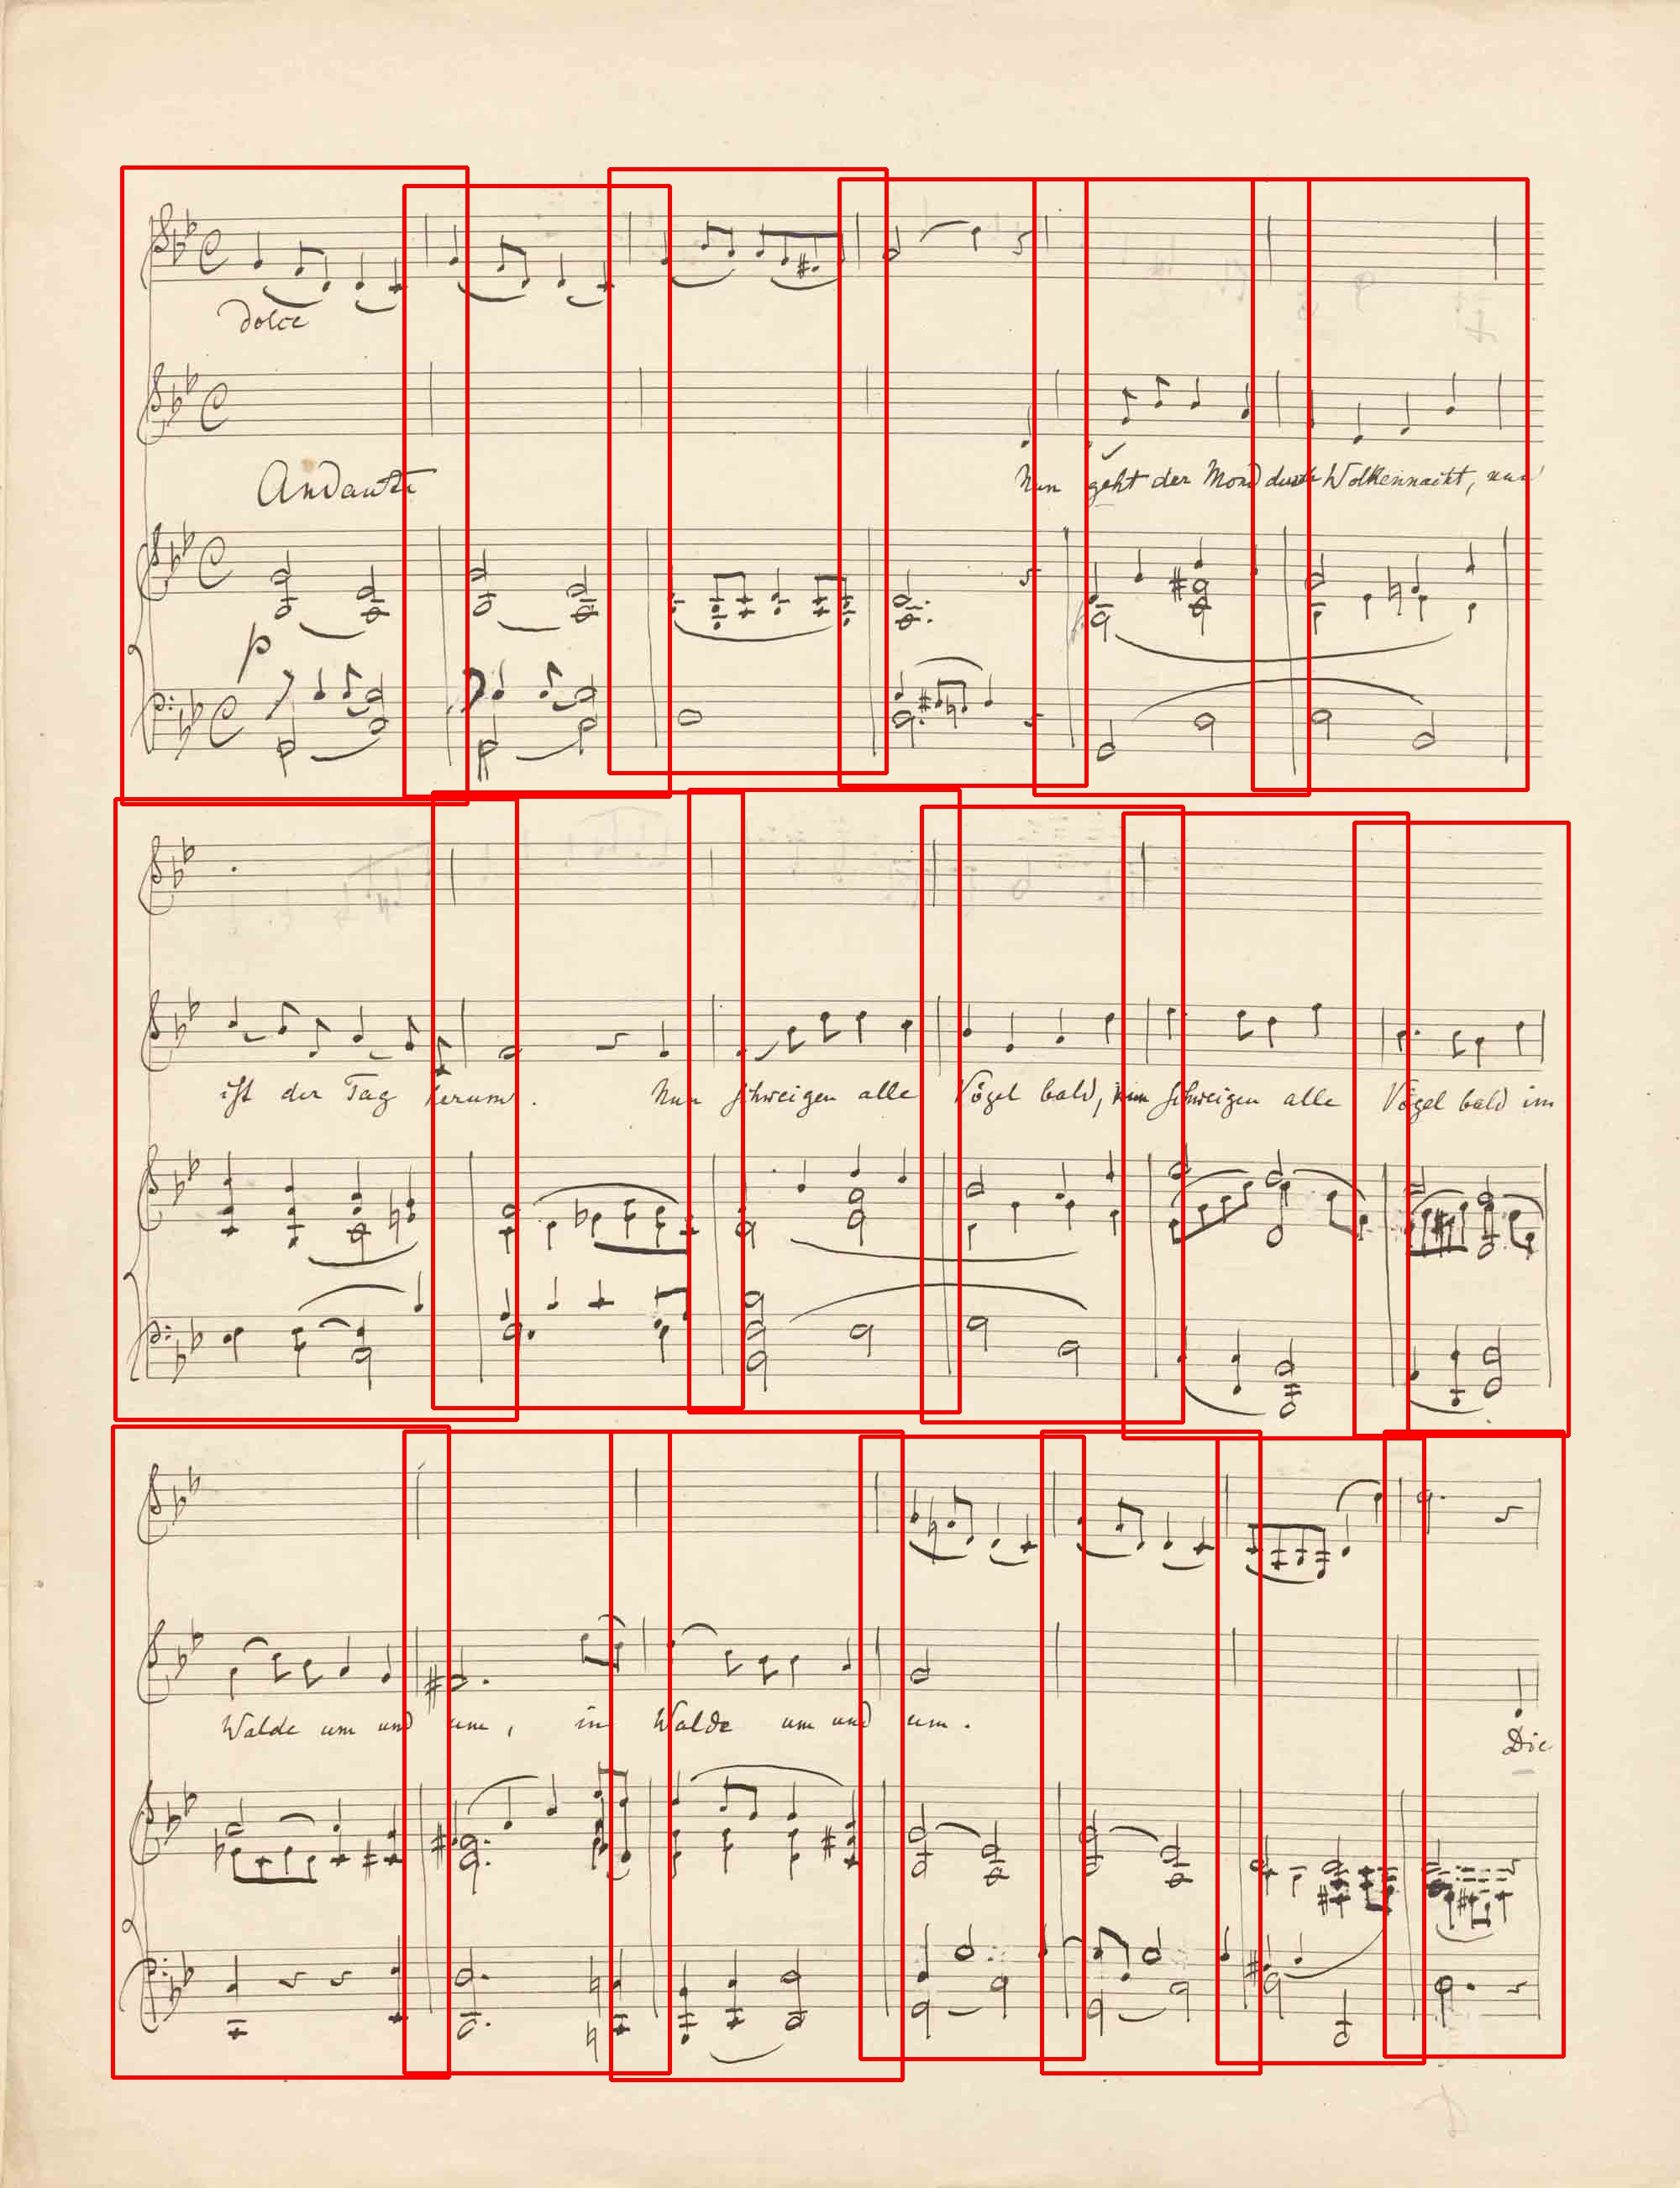 dolce
Andante
Nun geht der Mond durch Wolkennacht, nun
p
ist der Tag herum. Nun schweigen alle Vögel bald, nun schweigen alle Vögel bald im
Walde um und um, im Walde um und um. Die